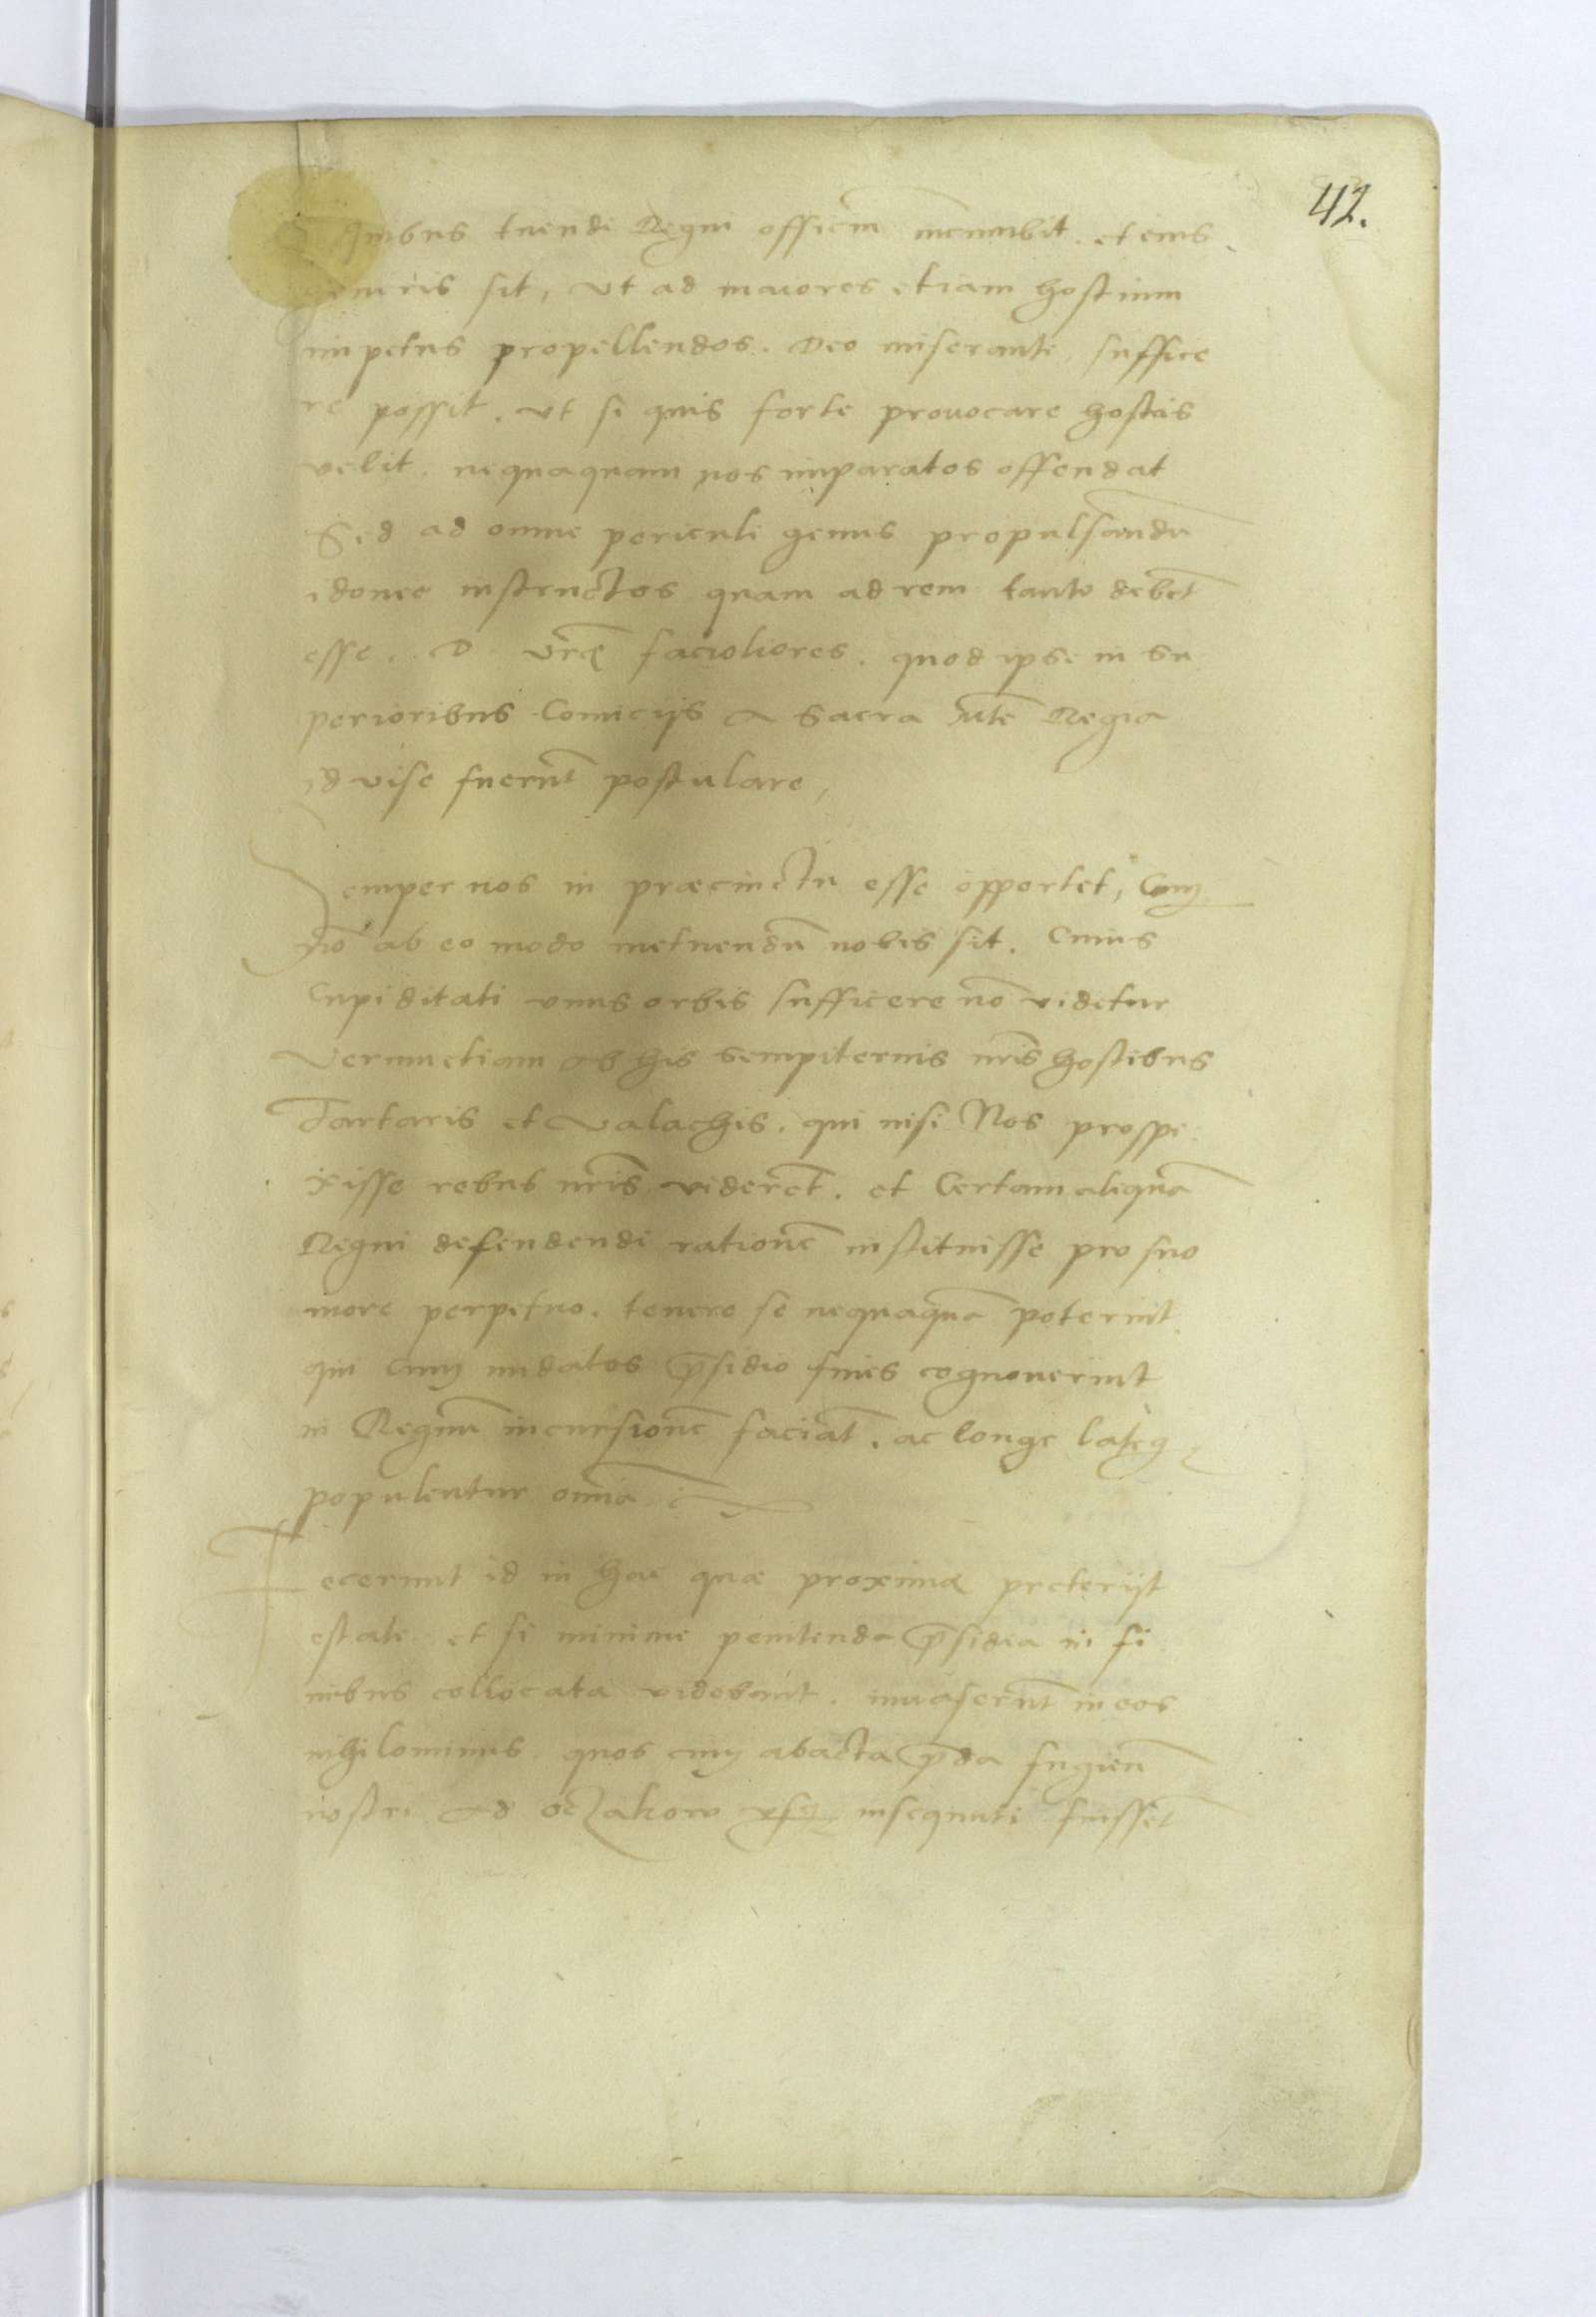 42.
Quibus tuendi Regni officiũ incumbit. et eius
generis sit, vt ad maiores etiam hostium
impetus propellendos. Deo miserante suffice
re possit. vt si quis forte prouocare hostis
velit. nequaquam nos imparatos offendat
Sed ad omne periculi genus propulsandũ
idonee instructos quam ad rem tanto debẽt
esse. D. vrę̃ facioliores. quod ipse in su
perioribus Comicijs a Sacra Mte Regia
id vise fuerũt postulare,
Semper nos in præcinctu esse opportet, Cum
nõ ab eo modo metuendũ nobis sit. Cuius
Cupiditati vnus orbis sufficere nõ videtur
Verumetiam ab his sempiternis nr̃is hostibus
Tartaris et Valachis. qui nisi Nos prospe
xisse rebus nr̃is viderẽt. et Certam aliquã
Regni defendendi rationẽ instituisse pro suo
more perpetuo. tenere se nequaquã poterũt
qui cum nudatos p̃sidio fines cognouerint
in Regnũ incursionẽ faciãt. ac longe lateq
populentur om̃ia
Fecerunt id in hac quæ proxima preterijt
estate et si minime penitenda p̃sidia in fi
nibus collocata videbãnt. inuaserũt in eos
nihilominus. quos cum abacta p̃da fugien
nostri ad oczakow vsq insequuti fuissẽt